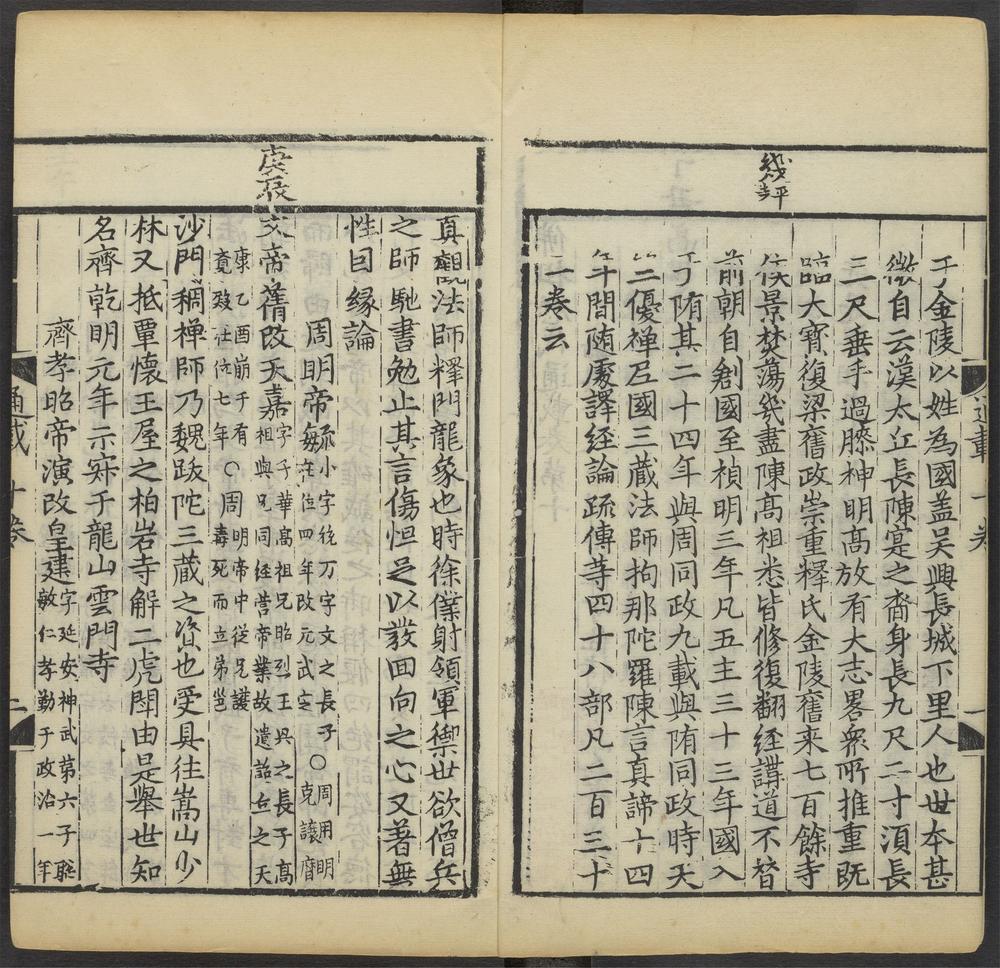 幾評
于金陵以姓為國蓋吴興長城下里人也世本甚
微自云漢太丘長陳寔之裔身長九尺二寸湏長
三尺垂手過膝神明髙放有大志畧衆所推重既
臨大寶復梁舊政崇重釋氏金陵舊来七百餘寺
侯景焚蕩幾盡陳髙祖悉皆修復翻經講道不替
前朝自創國至禎明三年凡五主三十三年國入
于隋其二十四年與周同政九載與隋同政時天
竺二優禅尼國三藏法師拘那陀羅陳言真諦十四
年間隨處譯経論疏傳等四十八部凡二百三十
二卷云
通載十卷
一
庚辰
真觀法師釋門龍象也時徐僕射領軍禦世欲僧兵
之師馳書勉止其言傷怛足以發回向之心又著無
性因縁論
周明帝毓小字統万字文之長子
在位四年改元武定
〇周用明
克讓曆
文帝蒨改天嘉字子華髙祖兄昭烈王
祖與兄同経营帝業故遺詔
之長子髙
立之天
康乙酉崩于有
竟殁在位七年〇周明帝中從兄護
毒死而立弟邕
沙門稠禅師乃魏跋陀三藏之資也受具往嵩山少
林又抵覃懷王屋之柏岩寺解二虎閗由是舉世知
名齊乾明元年示寂于龍山雲門寺
齊孝昭帝演改皇建字延安神武第六子聡
敏仁孝勤于政治一年
通載十卷
二